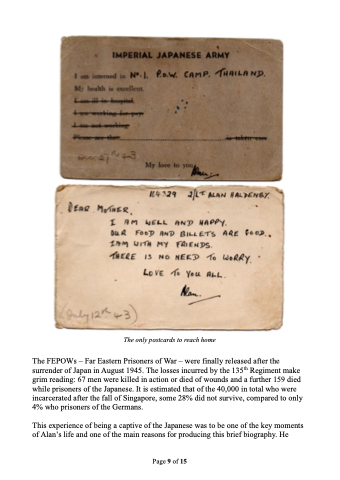 IMPERIAL JAPANESE ARMY
I am interned in No. 1. P.O.W. CAMP. THAILAND.
My health is excellent.
I am ill in hospital.
I am working for pay.
I am not working.
My love to you
Alan.
124329 2/LT ALAN HALDENBY.
DEAR MOTHER,
I AM WELL AND HAPPY.
OUR FOOD AND BILLETS ARE GOOD.
I AM WITH MY FRIENDS.
THERE IS NO NEED TO WORRY.
LOVE TO YOU ALL.
Alan.
(July 12th 43)
The only postcards to reach home
The FEPOWs – Far Eastern Prisoners of War – were finally released after the
surrender of Japan in August 1945. The losses incurred by the 135th Regiment make
grim reading: 67 men were killed in action or died of wounds and a further 159 died
while prisoners of the Japanese. It is estimated that of the 40,000 in total who were
incarcerated after the fall of Singapore, some 28% did not survive, compared to only
4% who prisoners of the Germans.
This experience of being a captive of the Japanese was to be one of the key moments
of Alan's life and one of the main reasons for producing this brief biography. He
Page 9 of 15